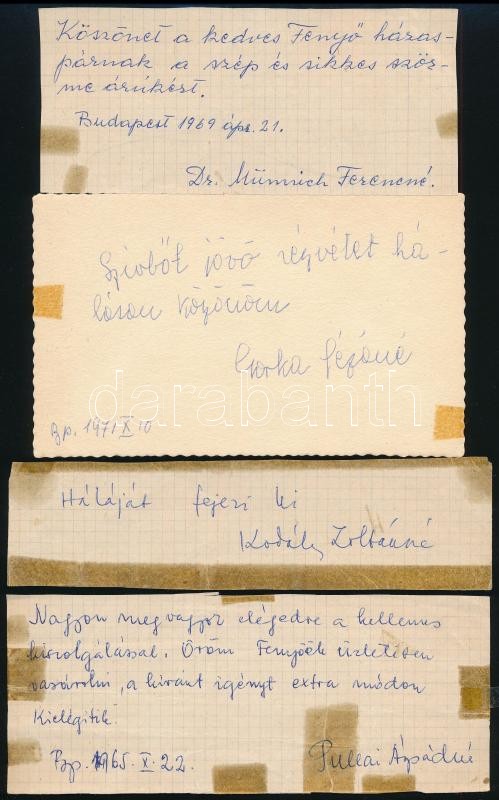 Köszönet a kedves Fenyő házas-
párnak a szép és sikkes szőr-
me árúkért.
Budapest 1969 ápr. 21.
Dr. Münnich Ferencné.
Szívből jövő részvétet há-
lásan köszönöm
Gorka Gézáné
Bp. 1971 X 10
darabanth
Háláját fejezi ki
Kodály Zoltánné
Nagyon meg vagyok elégedve a kellemes
kiszolgálással. Öröm Fenyőék üzletében
vásárolni, a kívánt igényt extra módon
kielégitik.
Bp. 1965. X. 22.
Pullai Árpádné